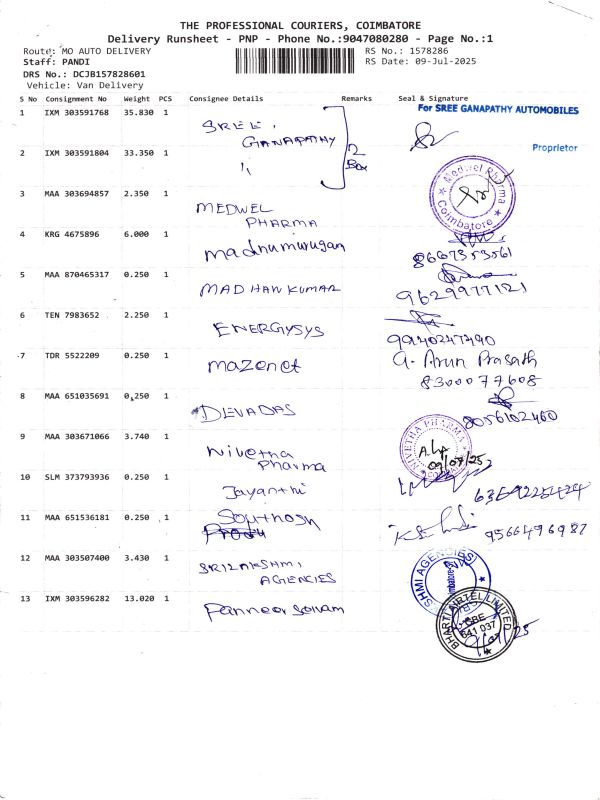 THE PROFESSIONAL COURIERS, COIMBATORE
Delivery Runsheet - PNP - Phone No.:9047080280 - Page No.:1
Route: MO AUTO DELIVERY
RS No.: 1578286
Staff: PANDI
RS Date: 09-Jul-2025
DRS No.: DCJB157828601
Vehicle: Van Delivery
S No Consignment No Weight PCS Consignee Details Remarks Seal & Signature
For SREE GANAPATHY AUTOMOBILES
Proprietor
1 IXM 303591768 35.830 1 SREE.
GANAPATHY
2 IXM 303591804 33.350 1 " 2 Box
3 MAA 303694857 2.350 1 MEDWEL
PHARMA
Medwel Pharma
Coimbatore
4 KRG 4675896 6.000 1 madhumurugan
8667353561
5 MAA 870465317 0.250 1 MADHAN KUMAR
9629977121
6 TEN 7983652 2.250 1 ENERGYSYS
9940247490
7 TDR 5522209 0.250 1 mazenet
G. Arun Prasath
8300077608
8 MAA 651035691 0.250 1 DEVADAS
8056102460
9 MAA 303671066 3.740 1 Nivetha
Pharma
NIVETHA PHARMA
09/07/25
10 SLM 373793936 0.250 1 Jayanthi
11 MAA 651536181 0.250 1 Southosh
9566496987
12 MAA 303507400 3.430 1 SRILAKSHMI
AGENCIES
SHMI AGENCIES
13 IXM 303596282 13.020 1 Panneer Selvam
BHARTI AIRTEL LIMITED
CBE
641 037